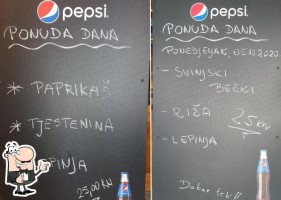 pepsi.
PONUDA DANA
* PAPRIKAŠ
* TJESTENINA
PINJA
25,00 KN
pepsi.
PONUDA DANA
PONEDJELJAK, 05.10.2020
- SVINJSKI
BEČKI
- RIŽA
25 KN
- LEPINJA
Dobar tek!!